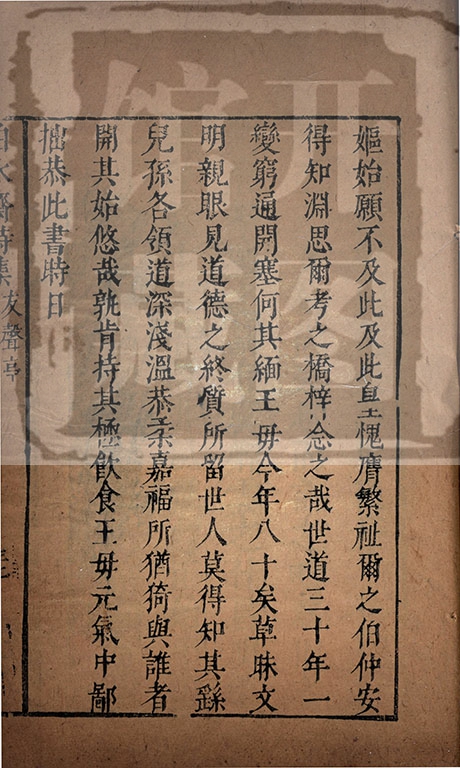 嫗始願不及此及此皇愧膺繁祉爾之伯仲安
得知淵思爾考之橋梓念之哉世道三十年一
變窮通開塞何其緬王毋今年八十矣草昧文
明親眼見道德之終質所留世人莫得知其繇
兒孫各領道深淺溫恭柔嘉福所猶猗與誰者
開其始悠哉孰肯持其極飲食王毋元氣中鄙
拙恭此書時日
白水齋詩集 友聲亭
開
图
馆
藏